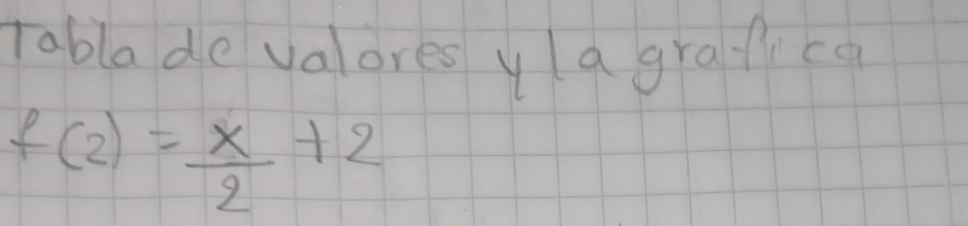 Tabla de valores y la grafica
f(2) = x/2 + 2